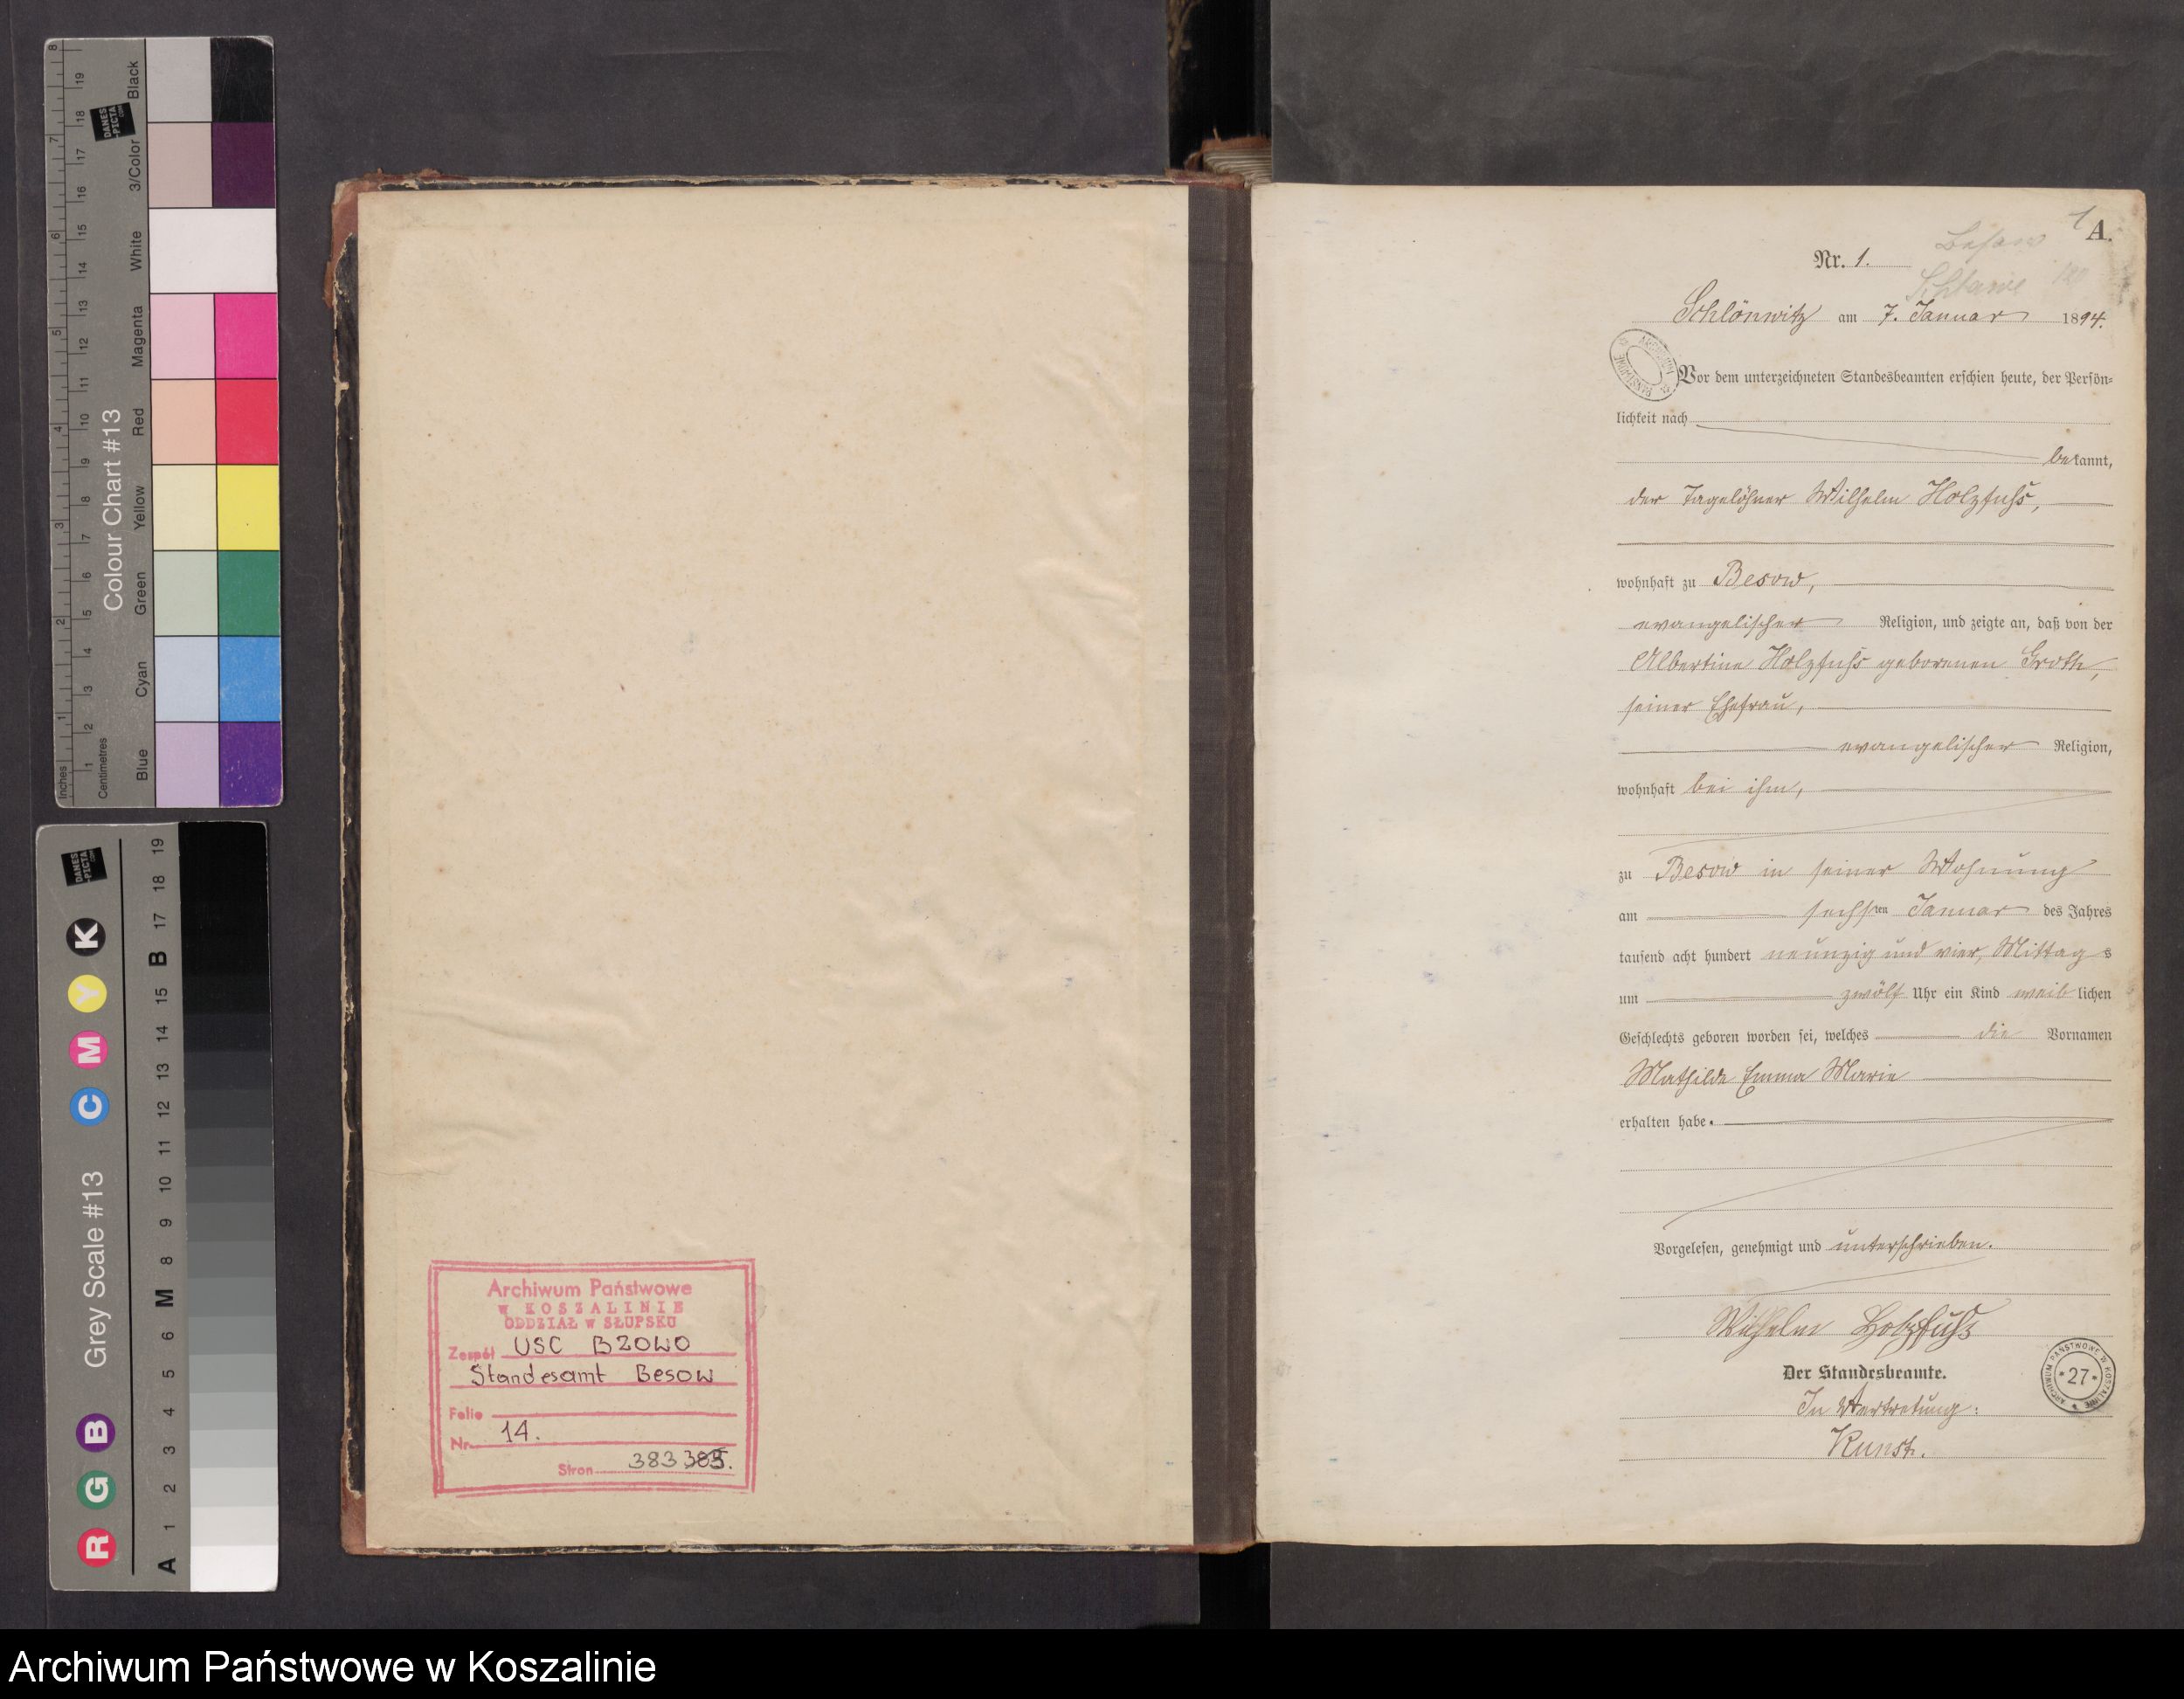 Inches
Centimetres
Colour Chart #13
Blue
Cyan
Green
Yellow
Red
Magenta
White
3/Color
Black
DANES
-PICTA
.COM
1 2 3 4 5 6 7 8
1 2 3 4 5 6 7 8 9 10 11 12 13 14 15 16 17 18 19
Grey Scale #13
R G B C M Y K
DANES
-PICTA
.COM
A 1 2 3 4 5 6 M 8 9 10 11 12 13 14 15 B 17 18 19
Archiwum Państwowe
w KOSZALINIE
ODDZIAŁ w SŁUPSKU
Zespół USC BZOWO
Standesamt Besow
Folio
Nr. 14.
Stron 383 385.
1
A.
Besow
Schlawe
Nr. 1.
Schlönwitz am 7. Januar 1894.
ARCHIWUM PAŃSTWOWE
Vor dem unterzeichneten Standesbeamten erschien heute, der Persön-
lichkeit nach
bekannt,
der Tagelöhner Wilhelm Holzfuß,
wohnhaft zu Besow,
evangelischer Religion, und zeigte an, daß von der
Albertine Holzfuß geborenen Groth,
seiner Ehefrau,
evangelischer Religion,
wohnhaft bei ihm,
zu Besow in seiner Wohnung
am sechsten Januar des Jahres
tausend acht hundert neunzig und vier, Mittags
um zwölf Uhr ein Kind weiblichen
Geschlechts geboren worden sei, welches die Vornamen
Mathilde Emma Marie
erhalten habe.
Vorgelesen, genehmigt und unterschrieben.
Wilhelm Holzfuß
Der Standesbeamte.
In Vertretung:
Kunst.
ARCHIWUM PAŃSTWOWE W KOSZALINIE
* 27 *
Archiwum Państwowe w Koszalinie